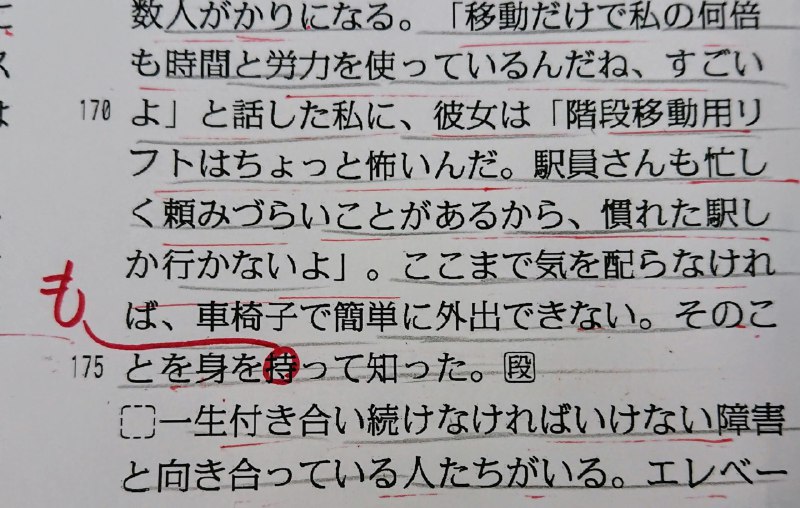 数人がかりになる。「移動だけで私の何倍
も時間と労力を使っているんだね、すごい
170 よ」と話した私に、彼女は「階段移動用リ
フトはちょっと怖いんだ。駅員さんも忙し
く頼みづらいことがあるから、慣れた駅し
か行かないよ」。ここまで気を配らなけれ
も
ば、車椅子で簡単に外出できない。そのこ
175 とを身を持って知った。段
一生付き合い続けなければいけない障害
と向き合っている人たちがいる。エレベー